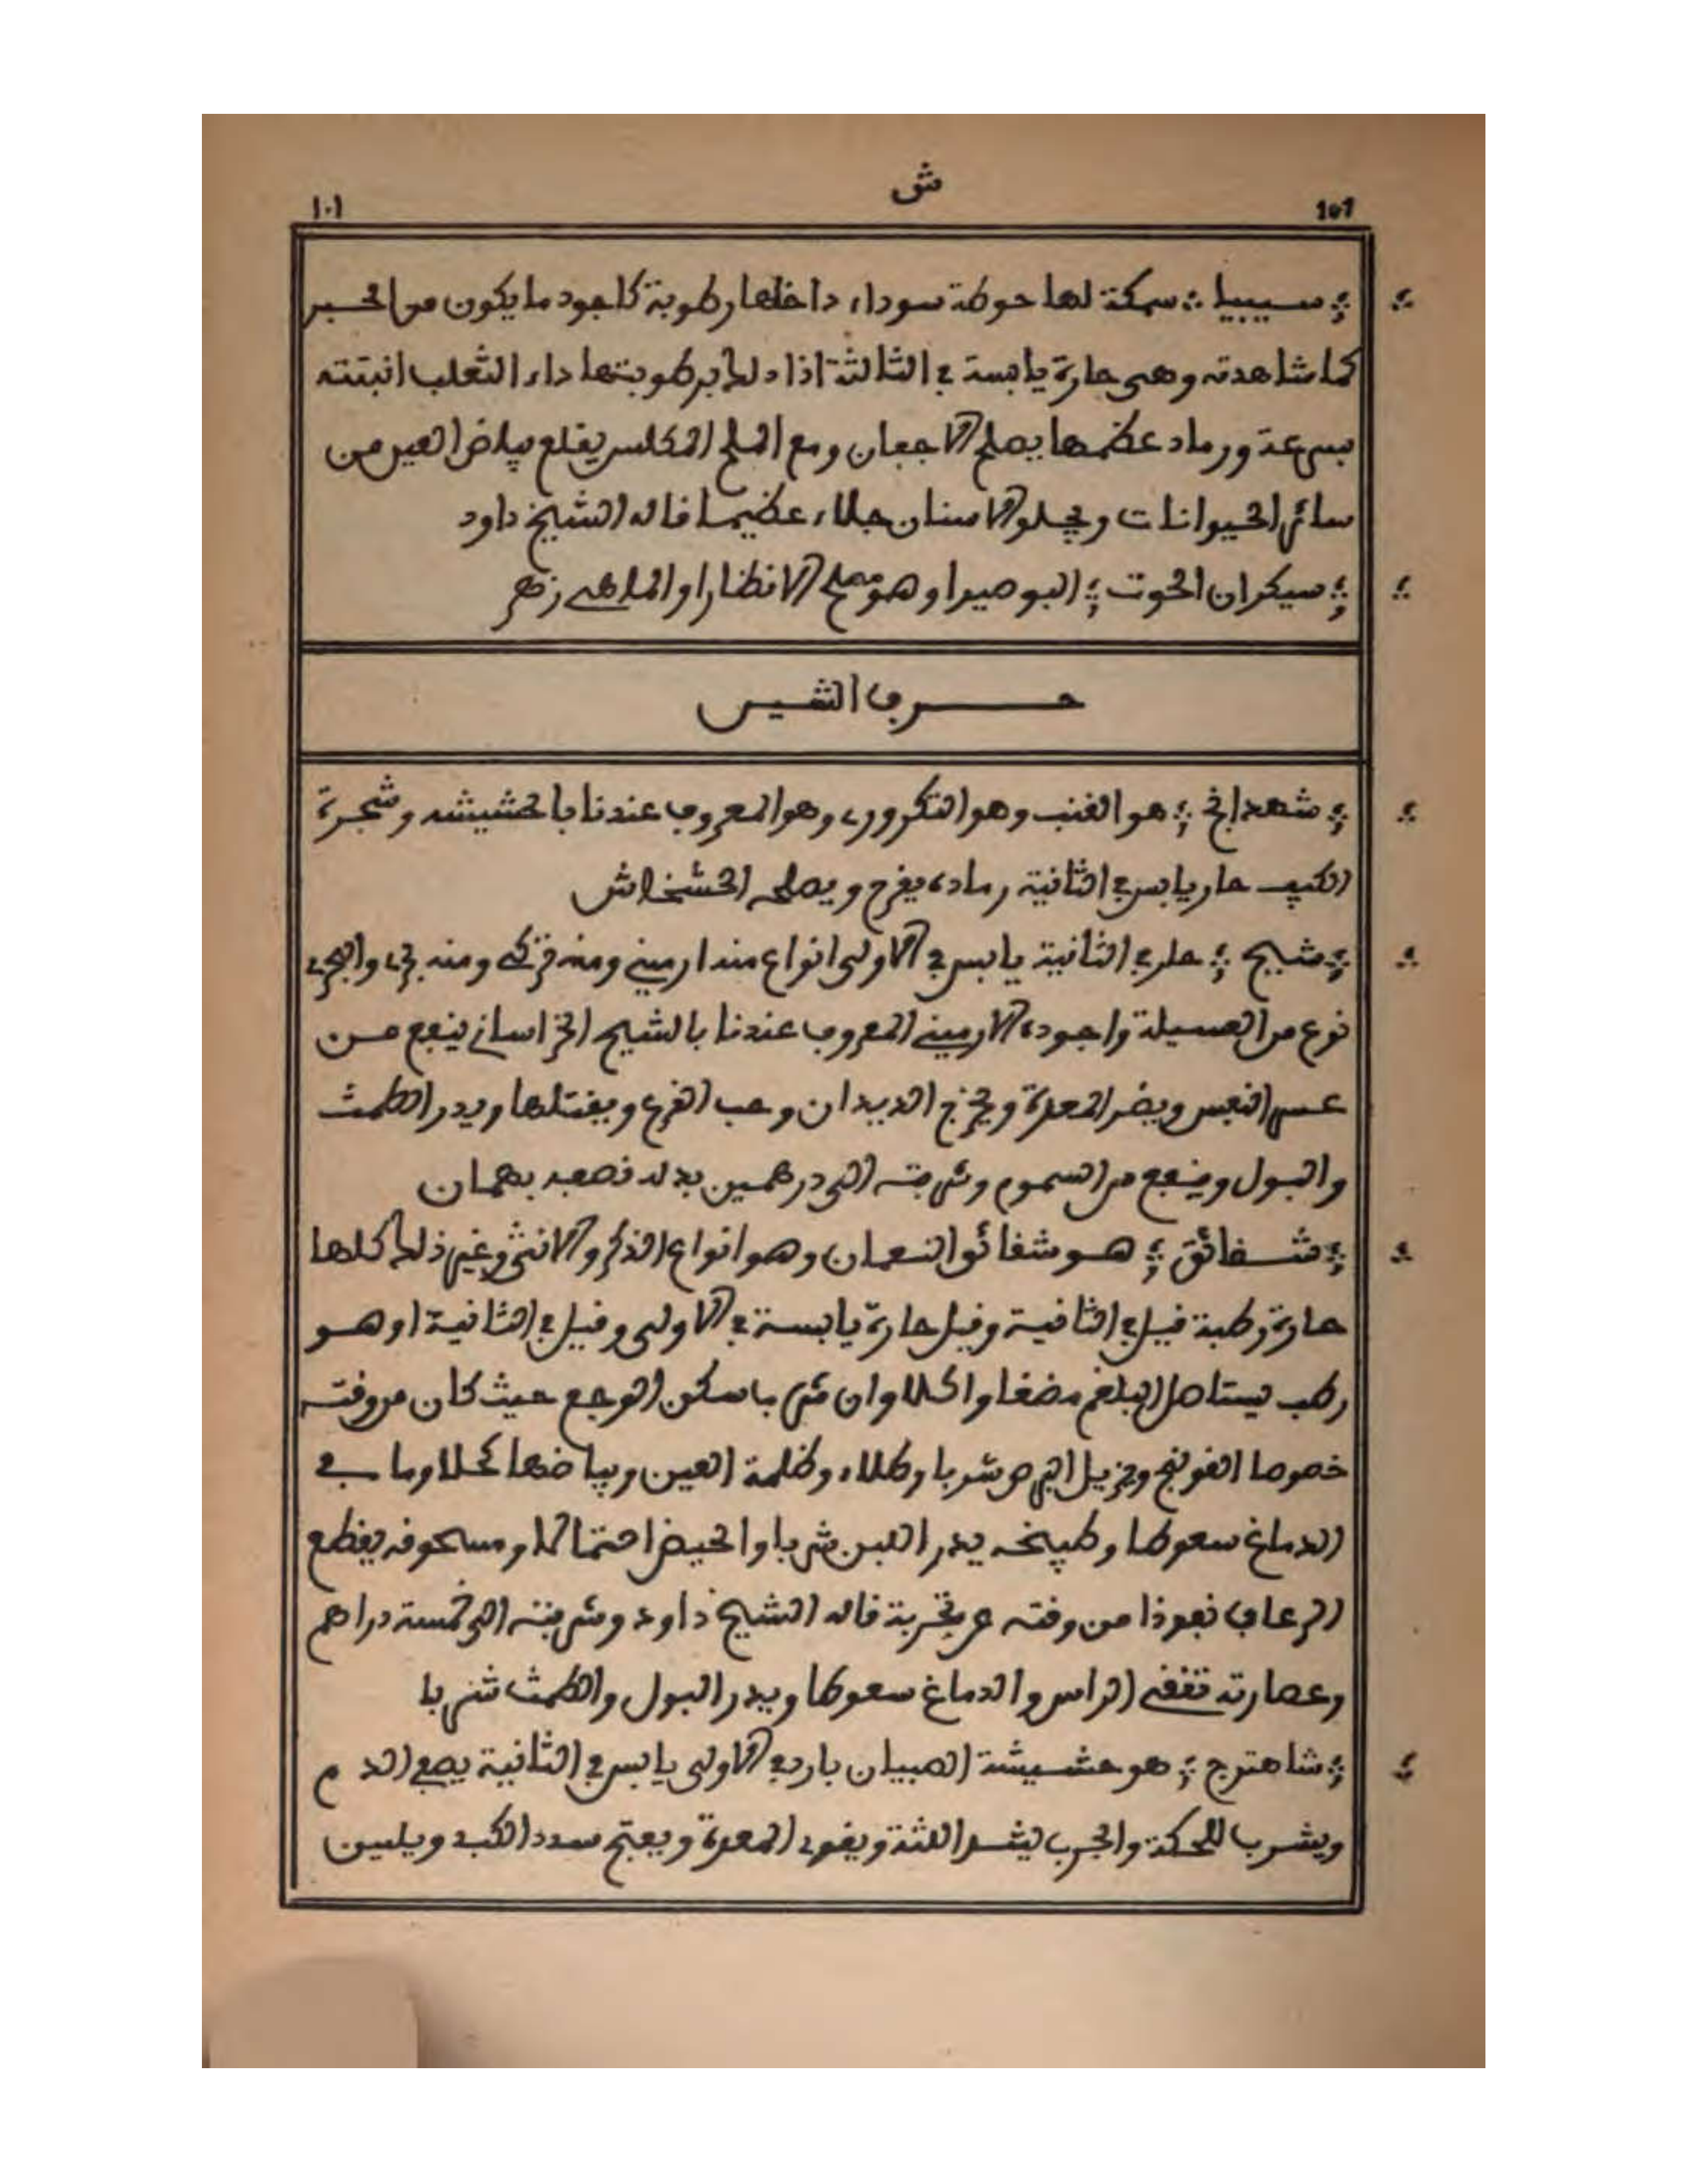 ش
101 ١٠١
؞ سيبيا ؞ سمكة لها حوطة سوداء داخلها رطوبة كاجود ما يكون من الحبر
كما شاهدته وهي حارة يابسة في الثالثة اذا دلك برطوبتها داء الثعلب انبتته
بسرعة ورماد عظمها يصلح الاجفان ومع الملح المكلس يقلع بياض العين من
سائر الحيوانات ويجلو الاسنان جلاء عظيما قاله الشيخ داود
؞ سيكران الحوت ؞ البوصيرا وهو مصلح الانظار او الماهي زهر
حرف الشين
؞ شهدانج ؞ هو القنب وهو التكروري وهو المعروف عندنا بالحشيشه وشجرة
الكيف حار يابس في الثانية رماده يفرح ويصلحه الخشخاش
؞ شيح ؞ حار في الثانية يابس في الاولى انواع منه ارميني ومنه تركي ومنه بري والبري
نوع من العسيلة واجوده الارميني المعروف عندنا بالشيح الخراساني ينفع من
عسر النفس ويضر المعدة ويخرج الديدان وحب القرع ويقتلها ويدر الطمث
والبول وينفع من السموم وشربته الى درهمين بدله نصفه بهمان
؞ شقائق ؞ هو شقائق النعمان وهو انواع الذكر والانثى وغير ذلك كلها
حارة رطبة قيل في الثانية وقيل حارة يابسة في الاولى وقيل في الثانية او هو
رطب يستاصل البلغم مضغا واكلا وان شربا سكن الوجع حيث كان من وقته
خصوصا القولنج ويزيل البرص شربا وطلاء وظلمة العين وبياضها كحلا وما في
الدماغ سعوطا وطبيخه يدر اللبن شربا والحيض احتمالا ومسحوقه يقطع
الرعاف نفوذا من وقته عن تجربة قاله الشيخ داود وشربته الى خمسة دراهم
وعصارته تنقي الراس والدماغ سعوطا ويدر البول والطمث شربا
؞ شاهترج ؞ هو حشيشة الصبيان بارد في الاولى يابس في الثانية يصفي الدم
ويشرب للحكة والجرب يشد اللثة ويقوي المعدة ويفتح سدد الكبد ويلين